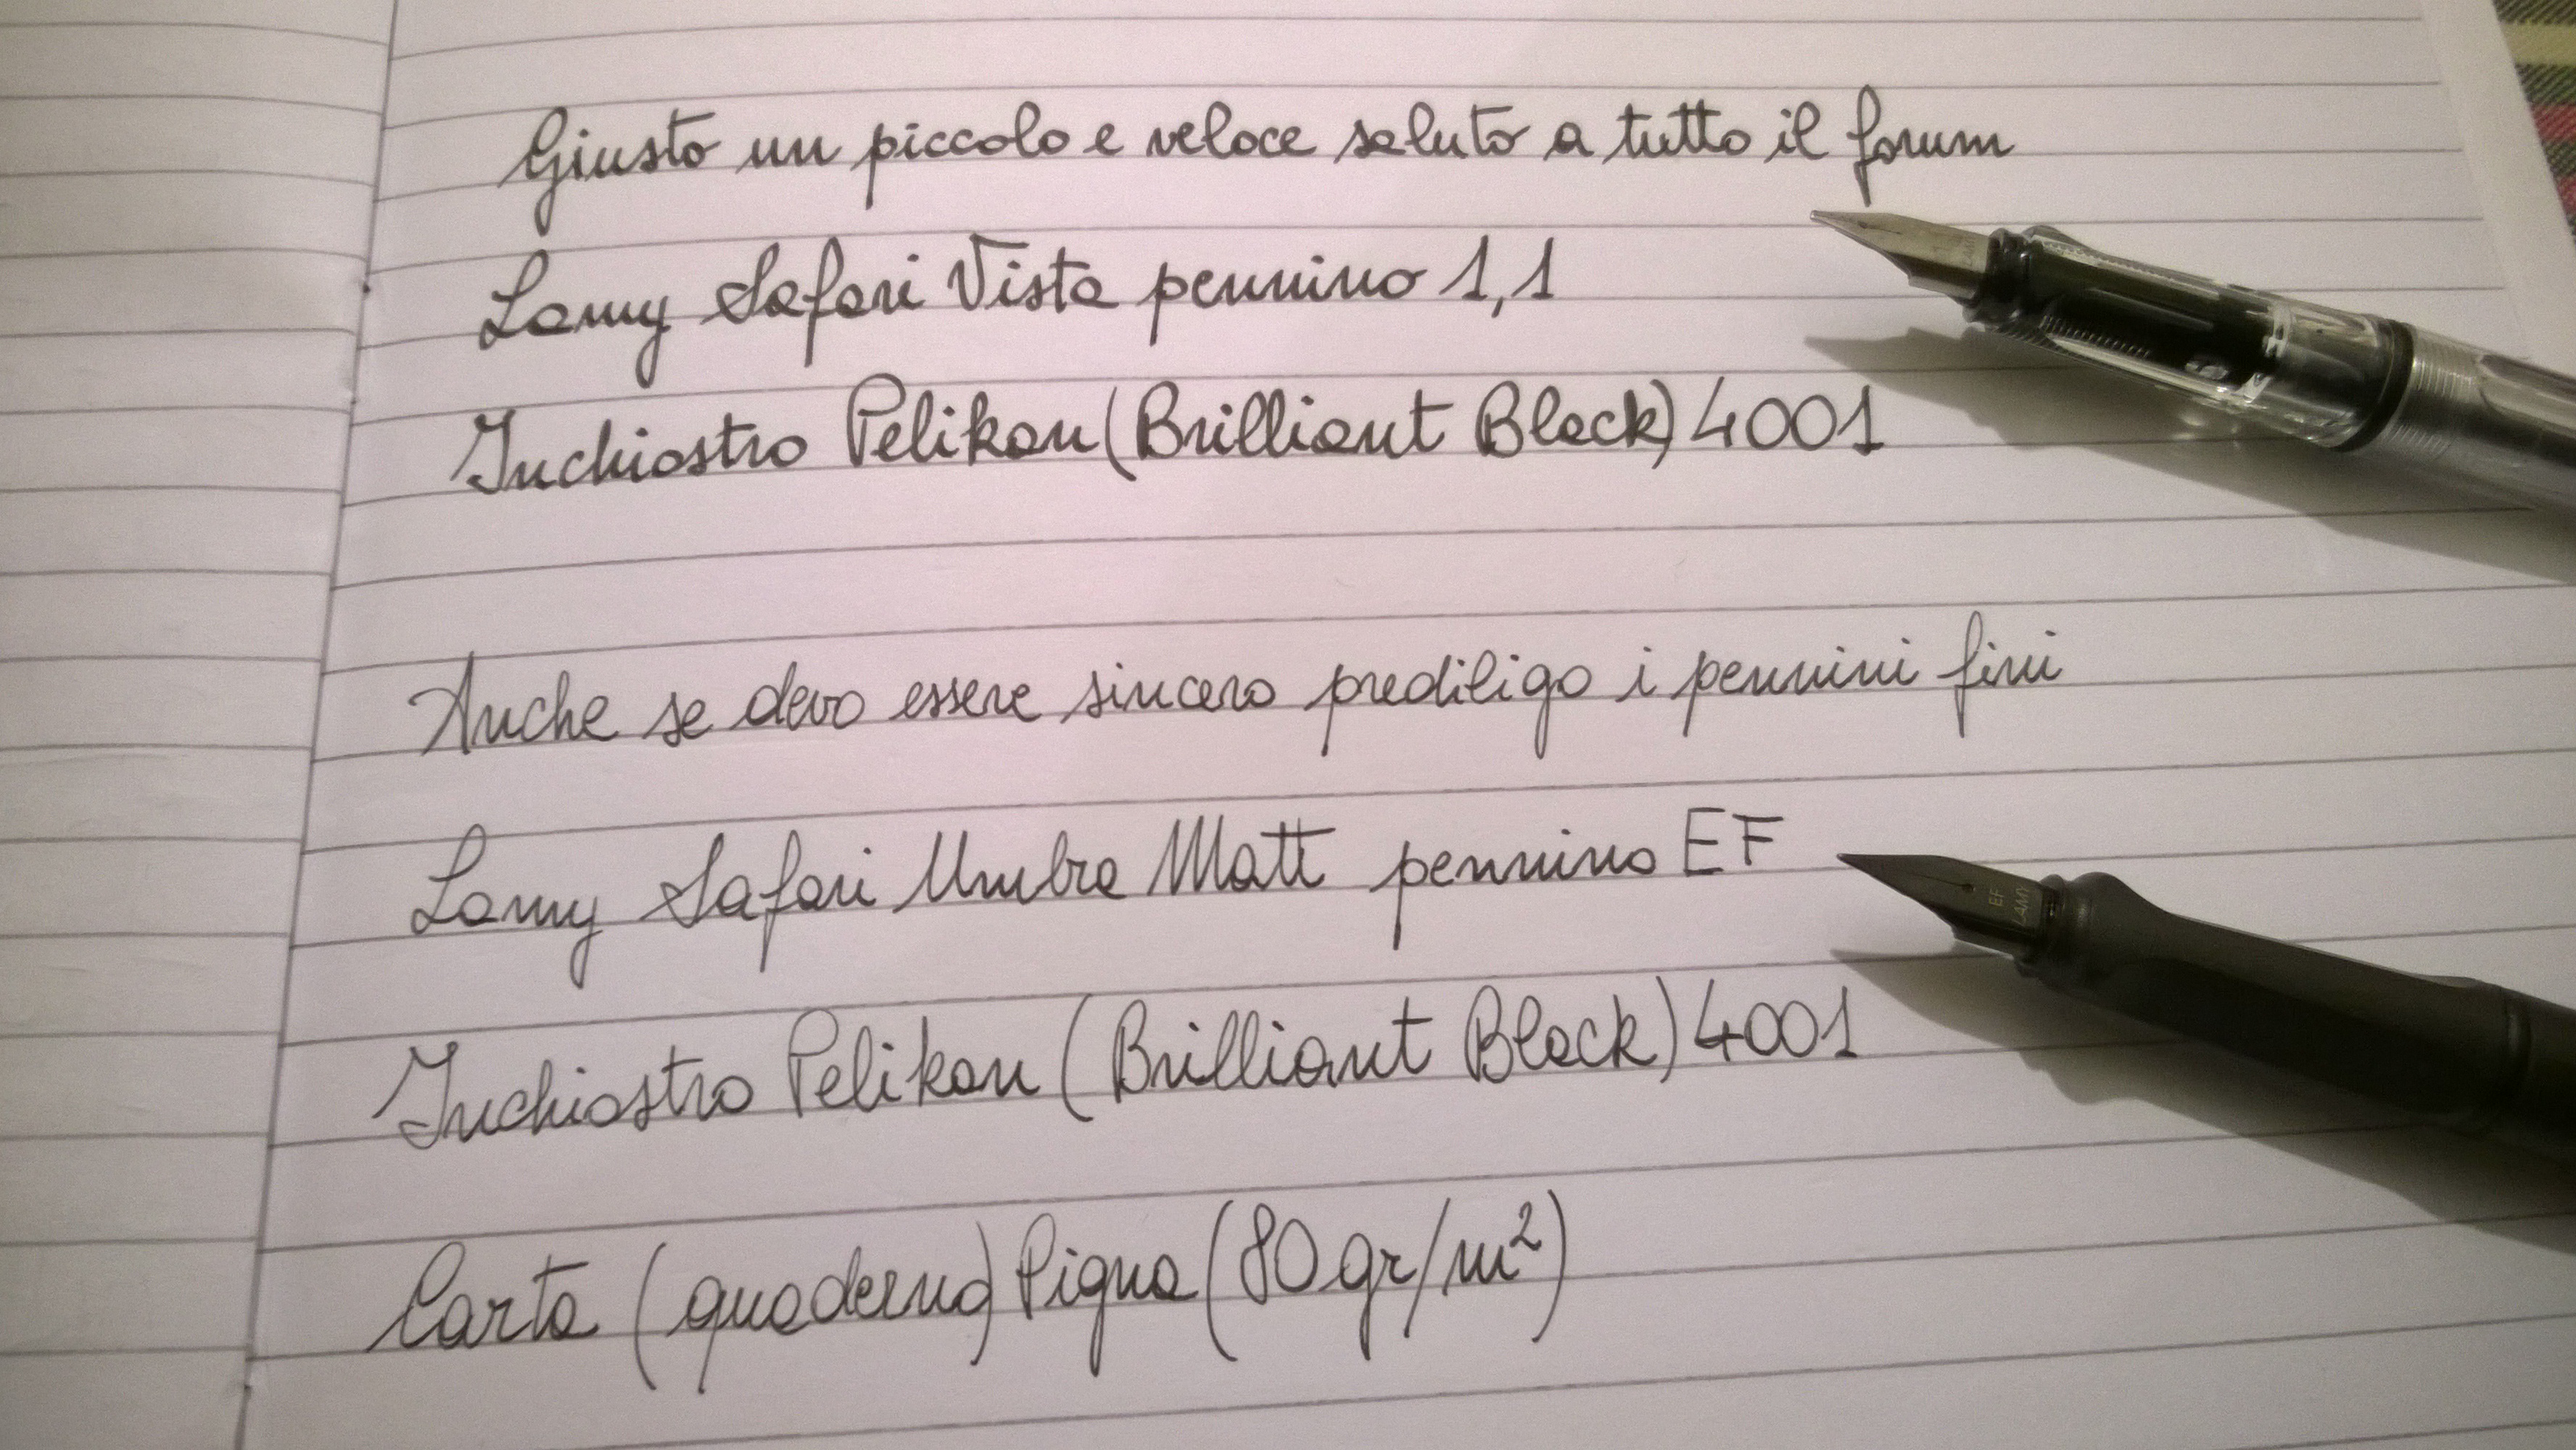 Giusto un piccolo e veloce saluto a tutto il forum
Lamy Safari Vista pennino 1,1
Inchiostro Pelikan (Brilliant Black) 4001
Anche se devo essere sincero prediligo i pennini fini
Lamy Safari Umbra Matt pennino EF
EF
LAMY
Inchiostro Pelikan (Brilliant Black) 4001
Carta (quaderno) Pigna (80 gr/m²)